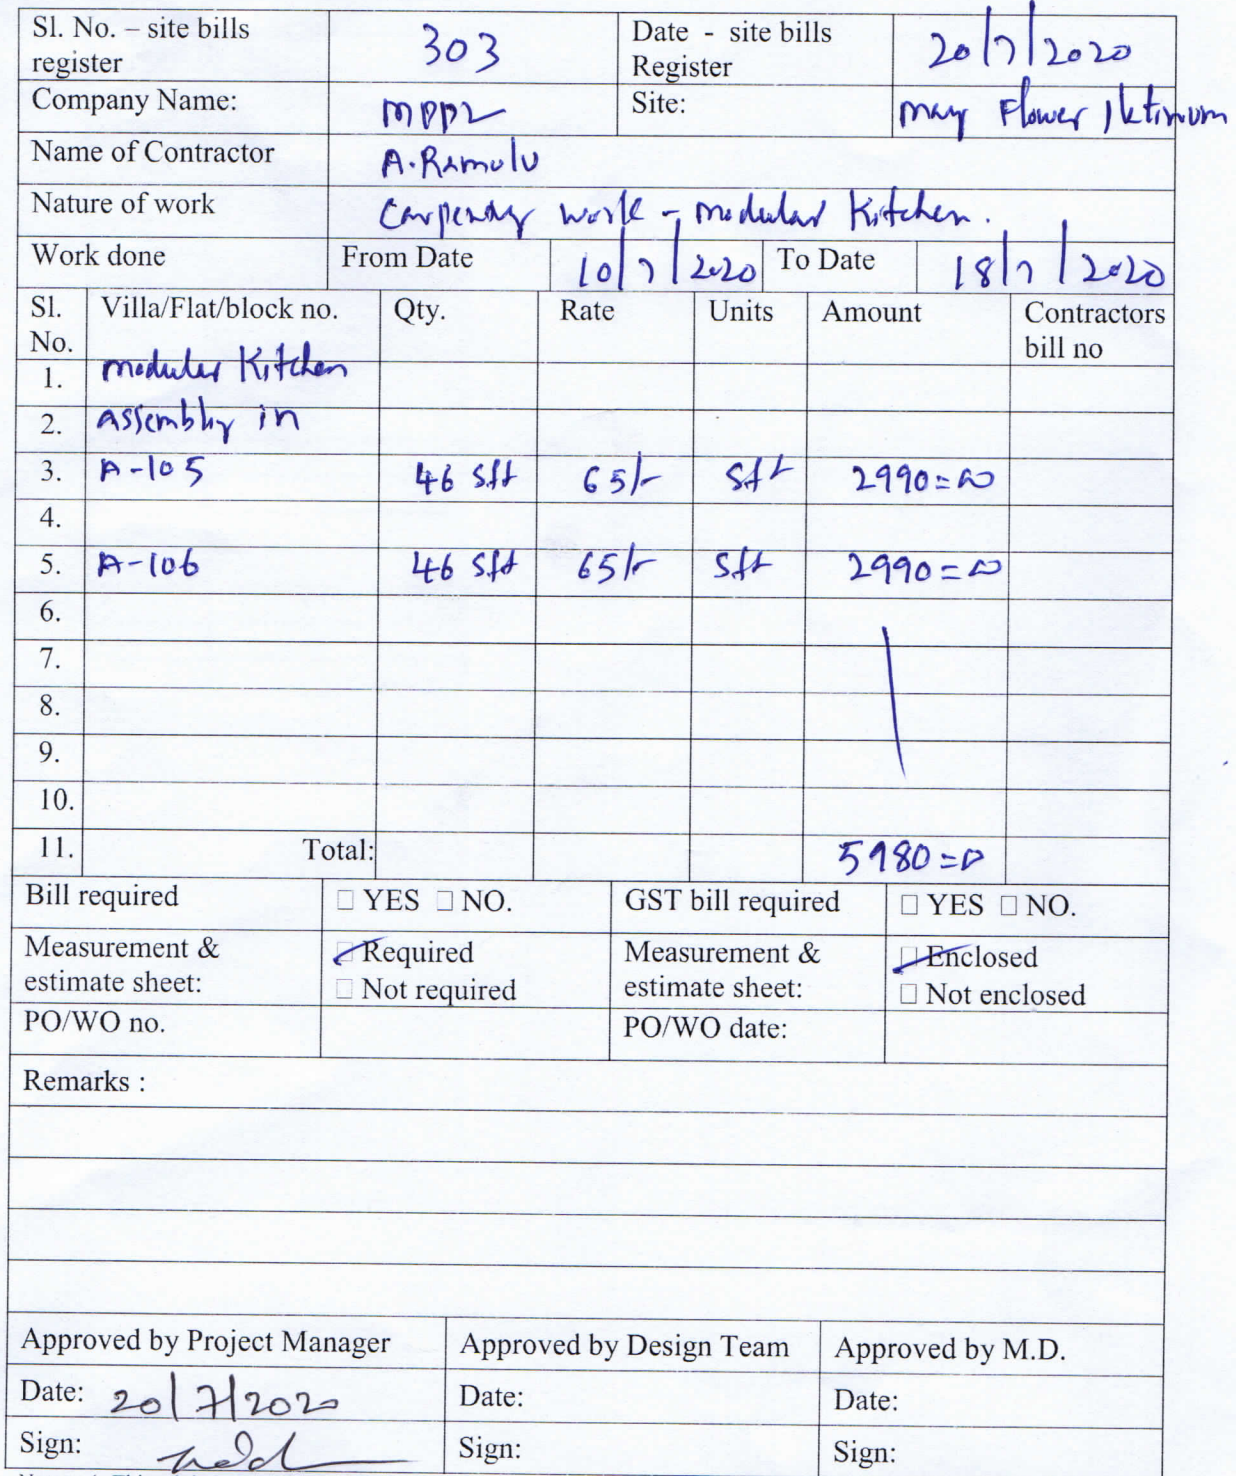 Sl. No. – site bills register 303 Date - site bills Register 20/7/2020
Company Name: MPPL Site: May Flower Platinum
Name of Contractor A. Ramulu
Nature of work Carpentry work - modular Kitchen.
Work done From Date 10/7/2020 To Date 18/7/2020
Sl. No. Villa/Flat/block no. Qty. Rate Units Amount Contractors bill no
1. modular Kitchen
2. Assembly in
3. A-105 46 sft 65/- sft 2990=00
4.
5. A-106 46 sft 65/- sft 2990=00
6.
7.
8.
9.
10.
11. Total: 5980=00
Bill required □ YES □ NO. GST bill required □ YES □ NO.
Measurement & estimate sheet: □ Required □ Not required Measurement & estimate sheet: □ Enclosed □ Not enclosed
PO/WO no. PO/WO date:
Remarks :
Approved by Project Manager Approved by Design Team Approved by M.D.
Date: 20/7/2020 Date: Date:
Sign: Sign: Sign: